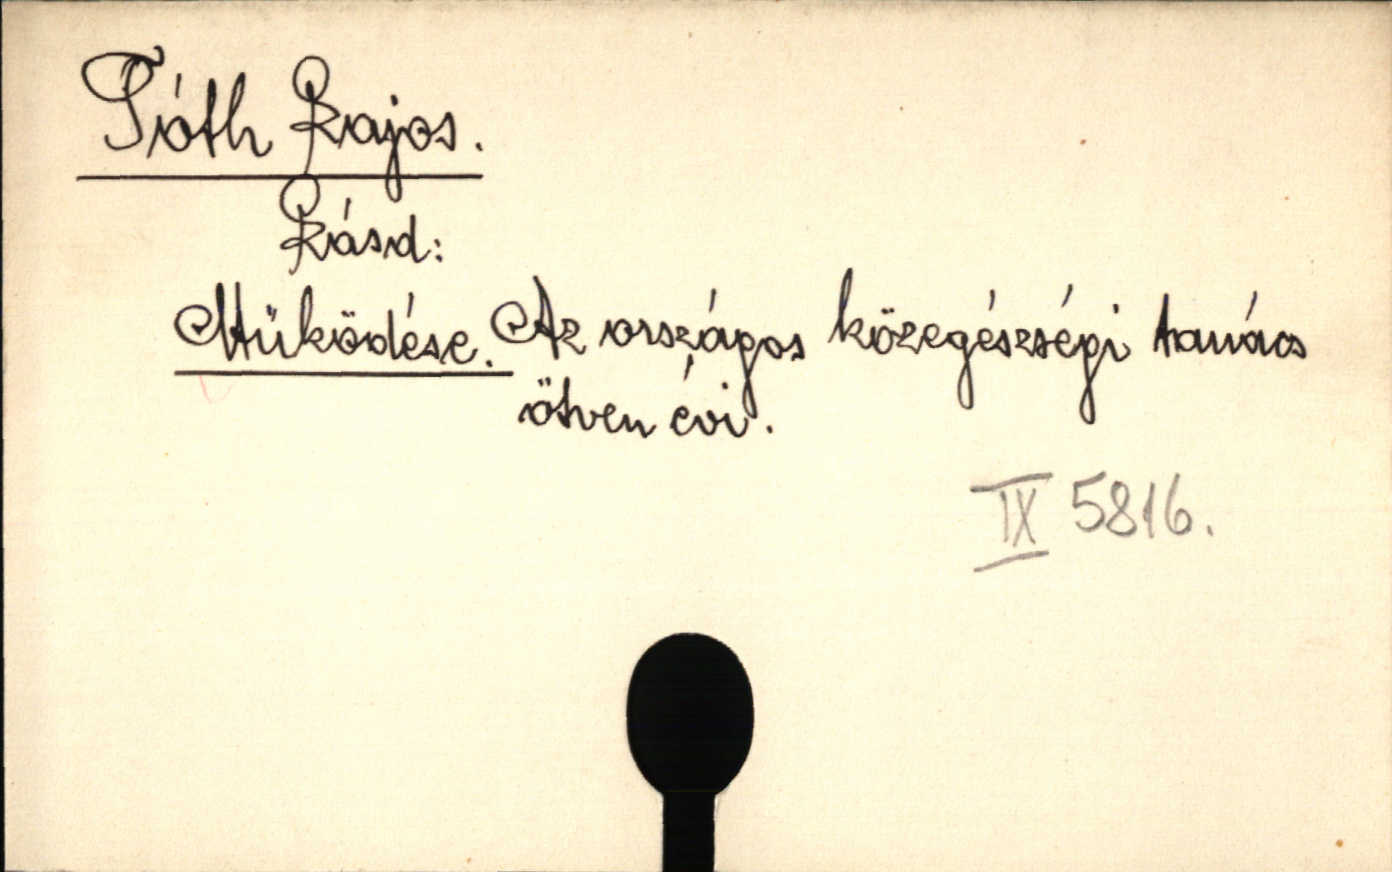 Tóth Lajos.
Lásd:
Müködése. Az országos közegészségi tanács
ötven évi.
IX 5816.